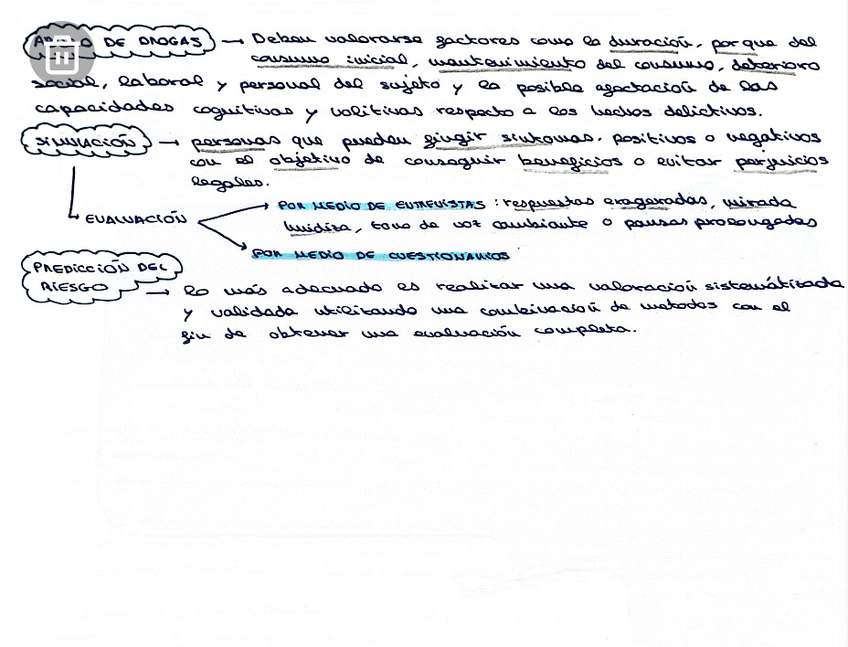 ABUSO DE DROGAS → Deben valorarse factores como la duración, por que del
consumo inicial, mantenimiento del consumo, deterioro
social, laboral y personal del sujeto y la posible afectación de las
capacidades cognitivas y volitivas respecto a los hechos delictivos.
SIMULACIÓN → personas que pueden fingir síntomas. positivos o negativos
con el objetivo de conseguir beneficios o evitar perjuicios
legales.
POR MEDIO DE ENTREVISTAS : respuestas exageradas, mirada
EVALUACIÓN
huidiza, tono de voz cambiante o pausas prolongadas
POR MEDIO DE CUESTIONARIOS
PREDICCIÓN DEL
RIESGO → lo más adecuado es realizar una valoración sistemátizada
y validada utilizando una combinación de metodos con el
fin de obtener una evaluación completa.